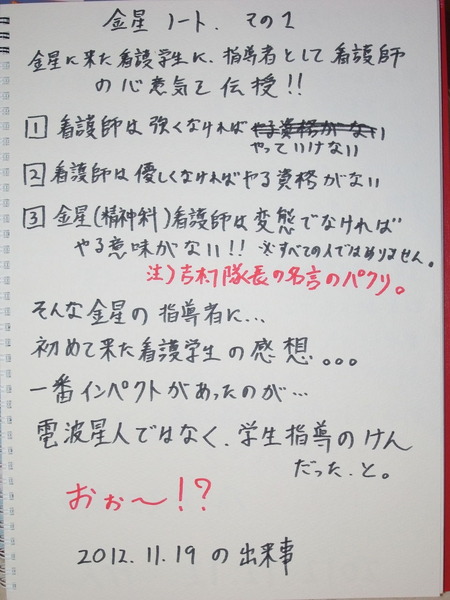 金星ノート.その1
金星に来た看護学生に、指導者として看護師
の心意気を伝授!!
1 看護師は強くなければやる資格がない
やっていけない
2 看護師は優しくなければやる資格がない
3 金星(精神科)看護師は変態でなければ
やる意味がない!! ※すべての人ではありません。
注)吉村隊長の名言のパクリ。
そんな金星の指導者に…
初めて来た看護学生の感想。。。
一番インペクトがあったのが…
電波星人ではなく、学生指導のけん
だった、と。
おぉ〜!?
2012.11.19の出来事